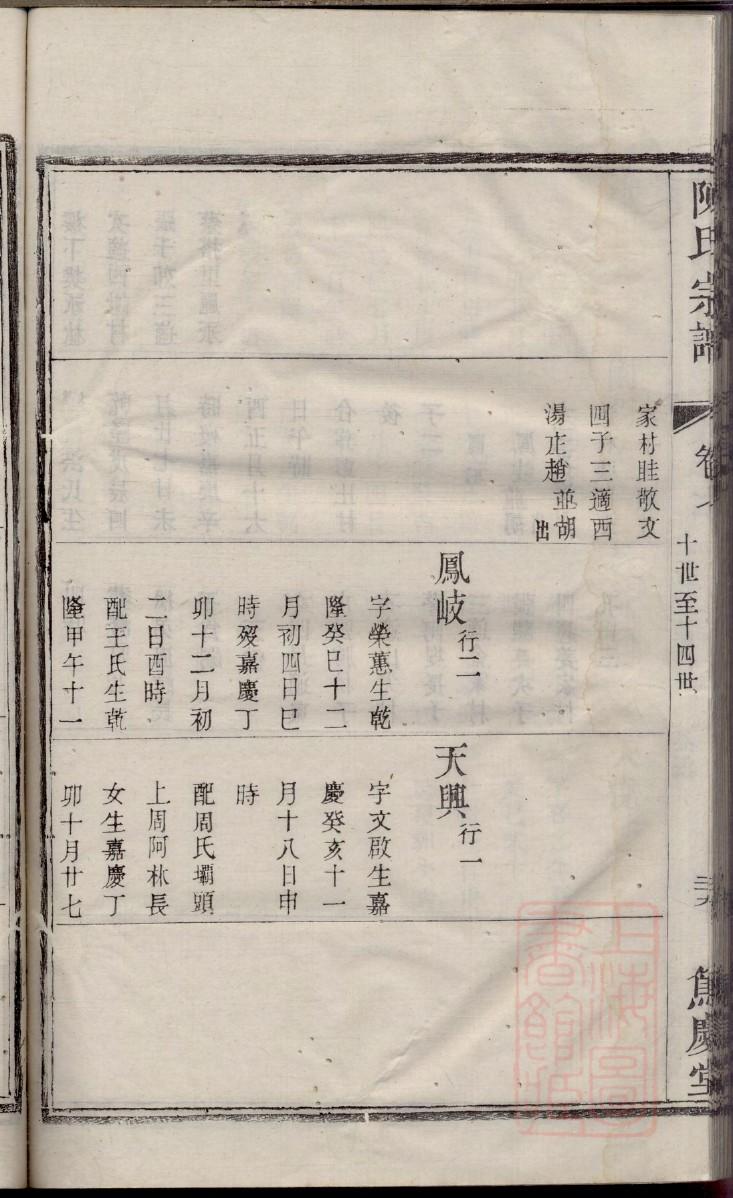 陳氏宗譜
卷
十世至十四世
篤慶堂
家村眭敬文
四子三適西
湯庄趙並胡
出
鳳岐行二
字榮蕙生乾
隆癸巳十二
月初四日巳
時歿嘉慶丁
卯十二月初
二日酉時
配王氏生乾
隆甲午十一
天興行一
字文啟生嘉
慶癸亥十一
月十八日申
時
配周氏壩頭
上周阿林長
女生嘉慶丁
卯十月廿七
上海圖書館藏